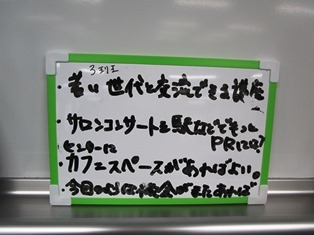 3班
・若い世代と交流できる講座
・サロンコンサートを駅などでもっと
PRしては!
センターに
・カフェスペースがあればよい。
・今日のような機会がまたあれば